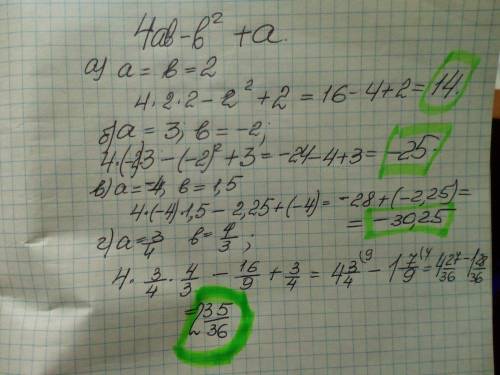 4ав-в² +а.
а) а = в = 2
4·2·2-2²+2 = 16-4+2= 14.
б) а = 3; в = -2;
4·(-2)3 - (-2)² + 3 = -24-4+3 = -25
в) а=-4, в = 1,5
4·(-4)·1,5 - 2,25+(-4) = -28+(-2,25)=
= -30,25
г) а=3/4 в=4/3;
4· 3/4 · 4/3 - 16/9 + 3/4 = 4 3/4 (9 - 1 7/9 (4 = 4 27/36 - 1 28/36
= 2 35/36